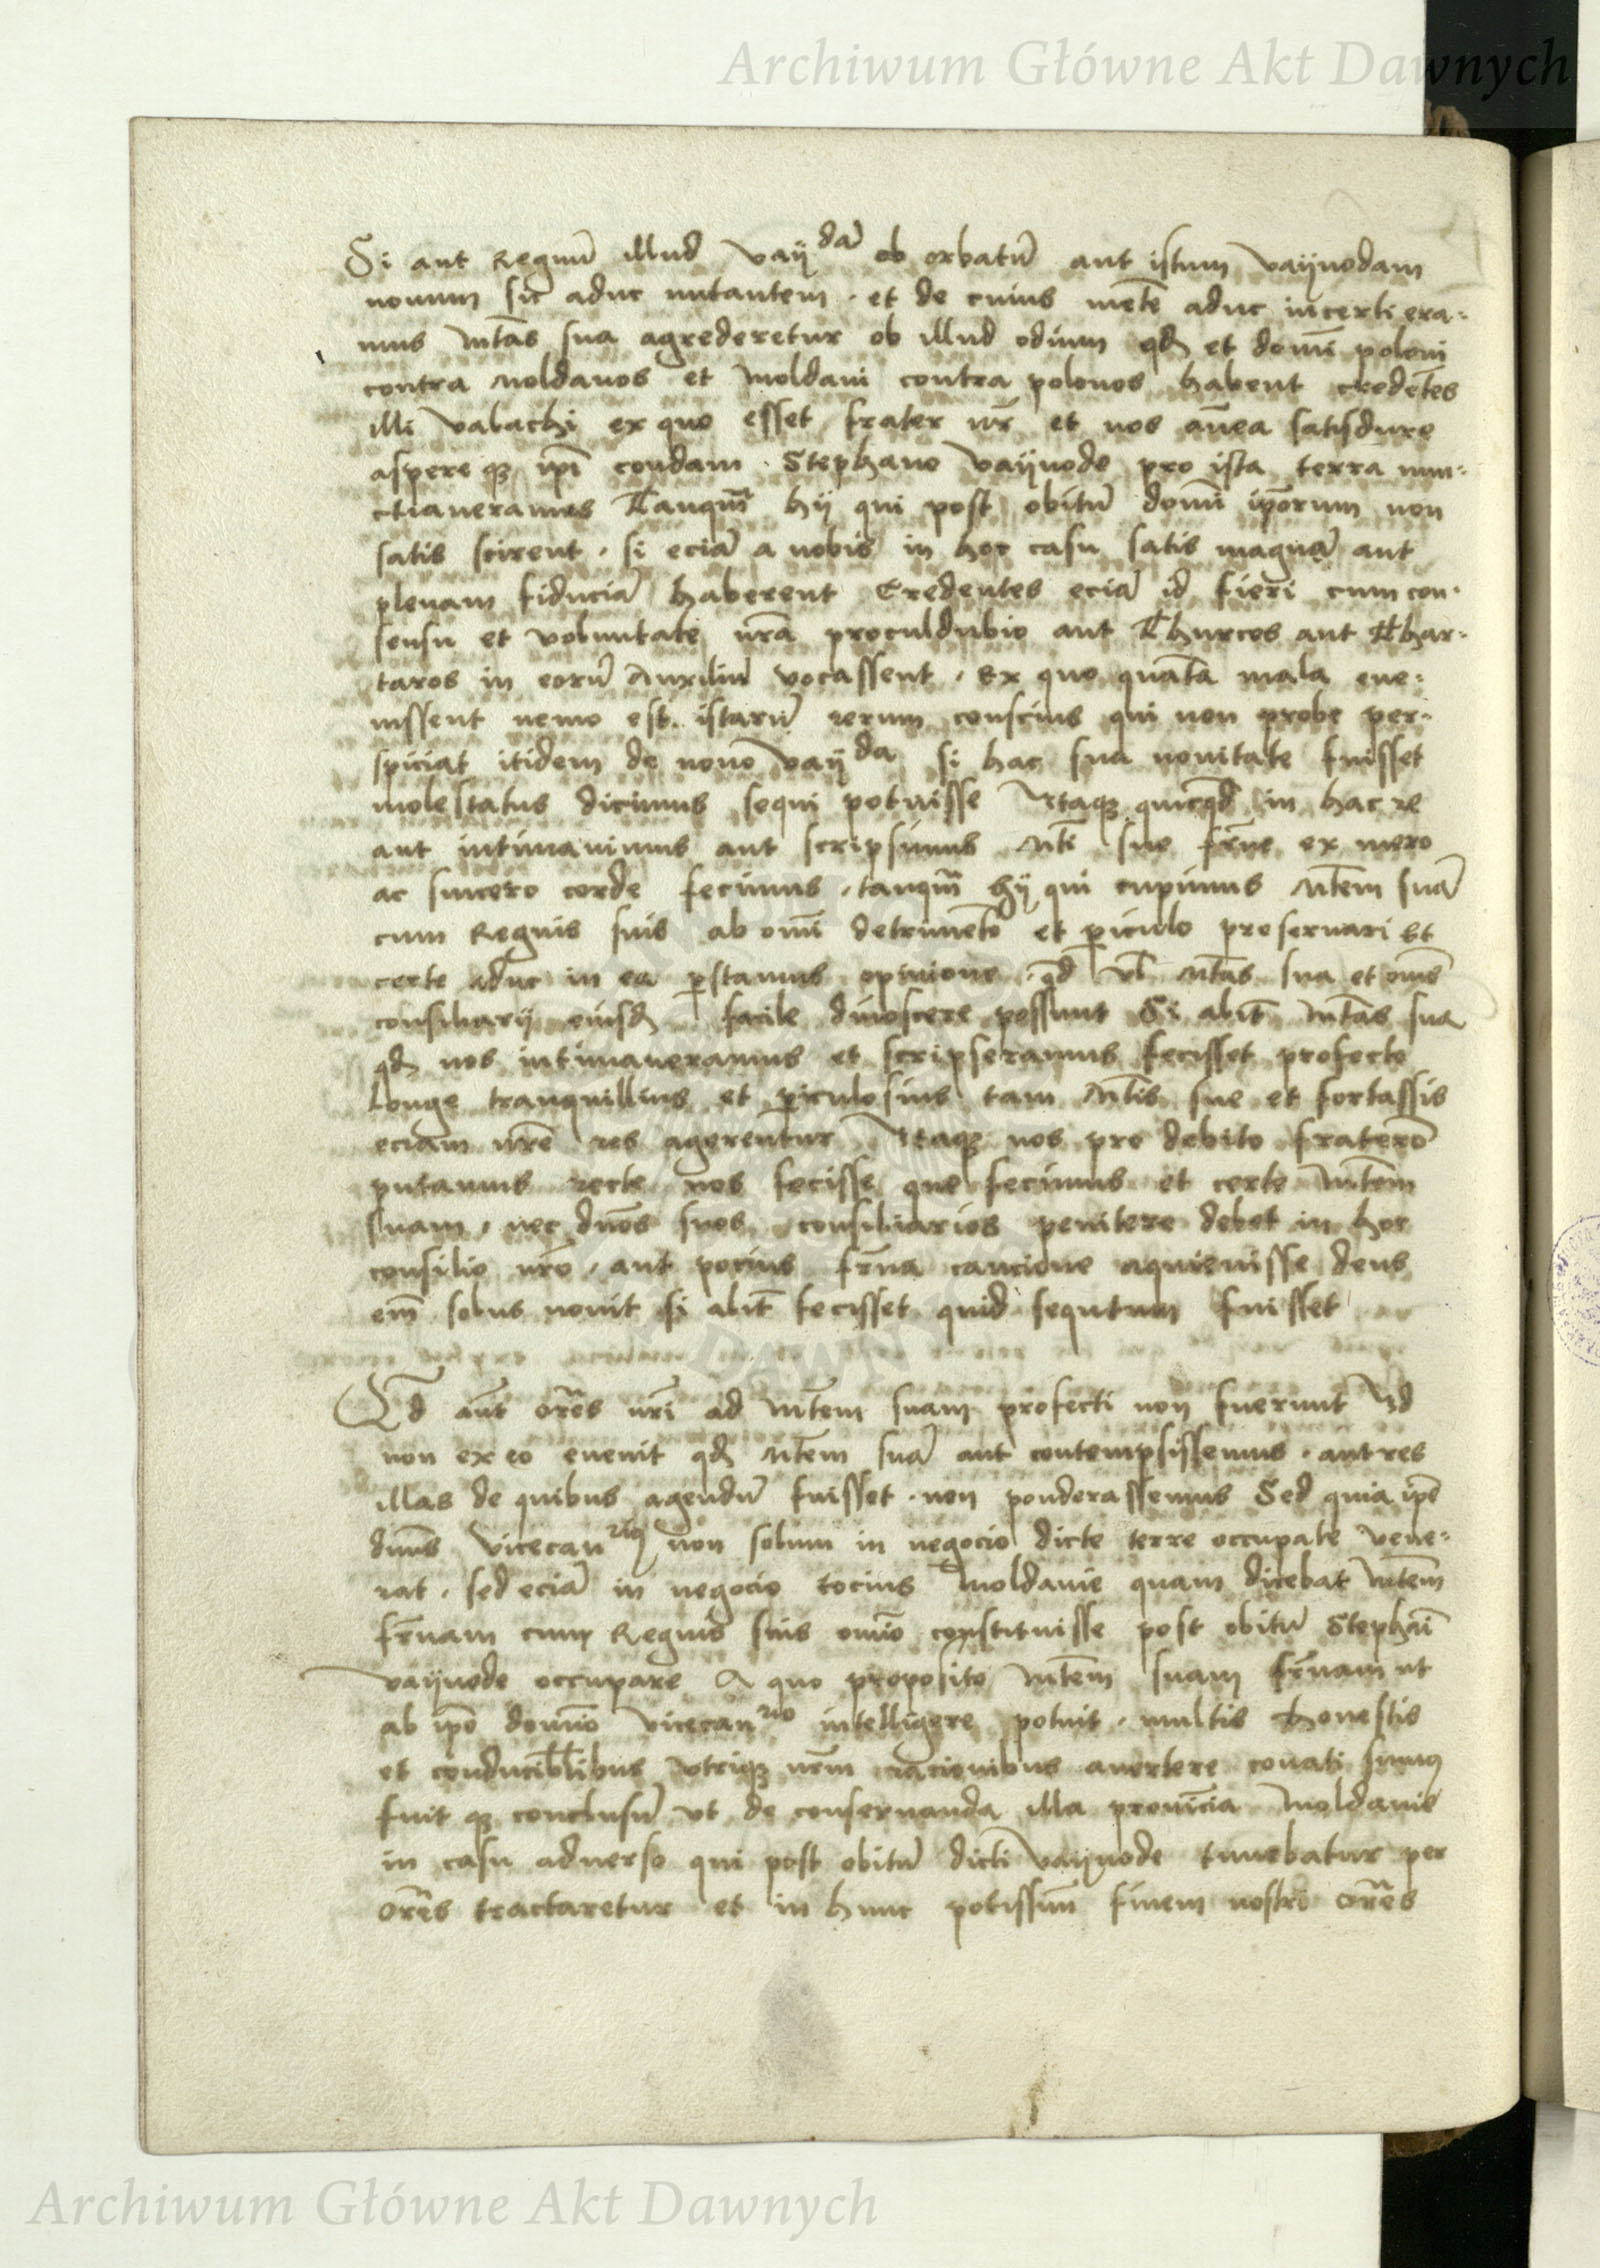 Archiwum Główne Akt Dawnych
Si aut Regnũ illud vaÿdã ob orbatũ aut istum vaÿuodam
nouum sic aduc nutantem . et de cuius mẽte aduc incerti era-
mus Mtas sua agrederetur ob illud odium qd et domĩ poloni
contra Moldauos et Moldaui contra polonos habent credẽtes
illi valachi ex quo esset frater nr̃ et nos añea satisdure
aspere qꝫ ip̃i condam . Stephano vaÿuode pro ista terra nun-
ctiaueramus Tanqm̃ hÿ qui post obitũ domĩ ip̃orum non
satis scirent . si eciã a nobis in hoc casu satis magnã aut
plenam fiduciã haberent Credentes eciã id fieri cum con-
sensu et voluntate nr̃a proculdubio aut Thurcos aut Thar-
taros in eorũ Auxiliũ vocassent . Ex quo quãta mala eue-
nissent nemo est istarũ rerum conscius qui non probe per-
spiciat itidem de nouo vaÿda si hac sua nouitate fuisset
molestatus dicimus sequi potuisse Itaqꝫ quicqd in hac re
aut intimauimus aut scripsimus Mti sue fr̃ne ex mero
ac sincero corde fecimus . tanqm̃ hÿ qui cupimus Mtem suã
cum Regnis suis ab om̃i detrimẽto et ꝑiculo preseruari Et
certe aduc in ea ꝑstamus opinione . qd vl̃ Mtas sua et om̃s
consiliarÿ eiusd facile dinoscere possunt Si alit̃ Mtas sua
qd nos intimaueramus et scripseramus fecisset profecto
Longe tranquillius et ꝑiculosius tam Mtis sue et fortassis
eciam nr̃e res agerentur Itaqꝫ nos pro debito fraterno
putamus recte nos fecisse que fecimus et certe Mtem
suam . nec dños suos consiliarios penitere debet in hoc
consilio nr̃o . aut pocius fr̃na caucione aquieuisse deus
em̃ solus nouit si alit̃ fecisset quid sequtum fuisset
Qd aũt or̃es nr̃i ad Mtem suam profecti non fuerunt Id
non ex eo euenit qd Mtem suã aut contempsissemus . aut res
illas de quibus agendũ fuisset . non ponderassemus Sed quia ip̃e
dñus vicecanrius non solum in negocio dicte terre occupate vene-
rat . sed eciã in negocio tocius Moldauie quam dicebat Mtem
fr̃nam cum Regnis suis om̃io constituisse post obitũ Stephani
vaÿuode occupare A quo proposito Mtem suam fr̃nam ut
ab ip̃o domino vicecanrio intelligere potuit . multis honestis
et conducibilibus vtriqꝫ nr̃m racionibus auertere conati sumus
fuit qꝫ conclusũ vt de conseruanda illa prouincia Moldauie
in casu aduerso qui post obitũ dicti vaÿuode timebatur per
or̃es tractaretur et in hunc potissim̃ finem nostri or̃es
Archiwum Główne Akt Dawnych